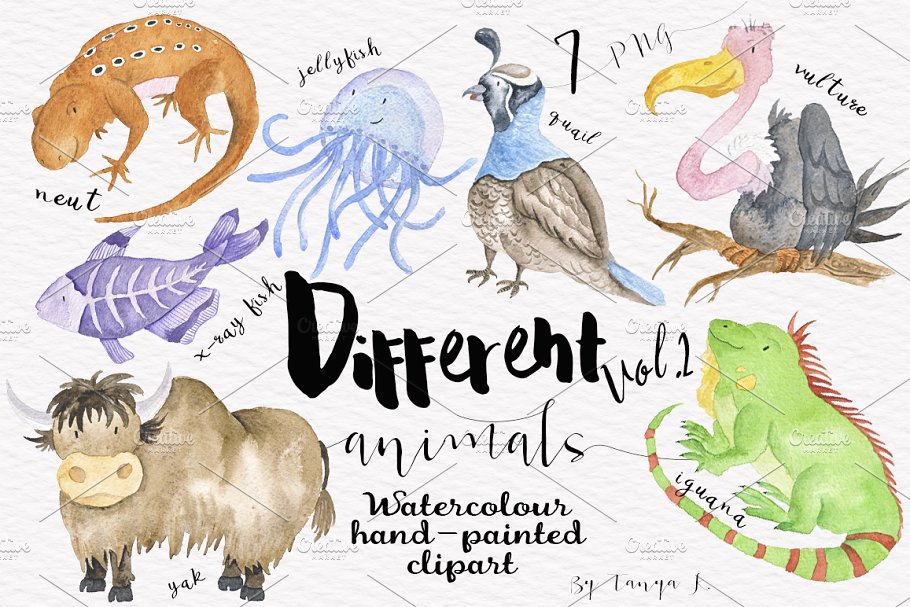 jellyfish
7 PNG
quail
vulture
newt
x-ray fish
Different vol.2
animals
Watercolour
hand-painted
clipart
iguana
yak
By Tanya K.
Creative Market